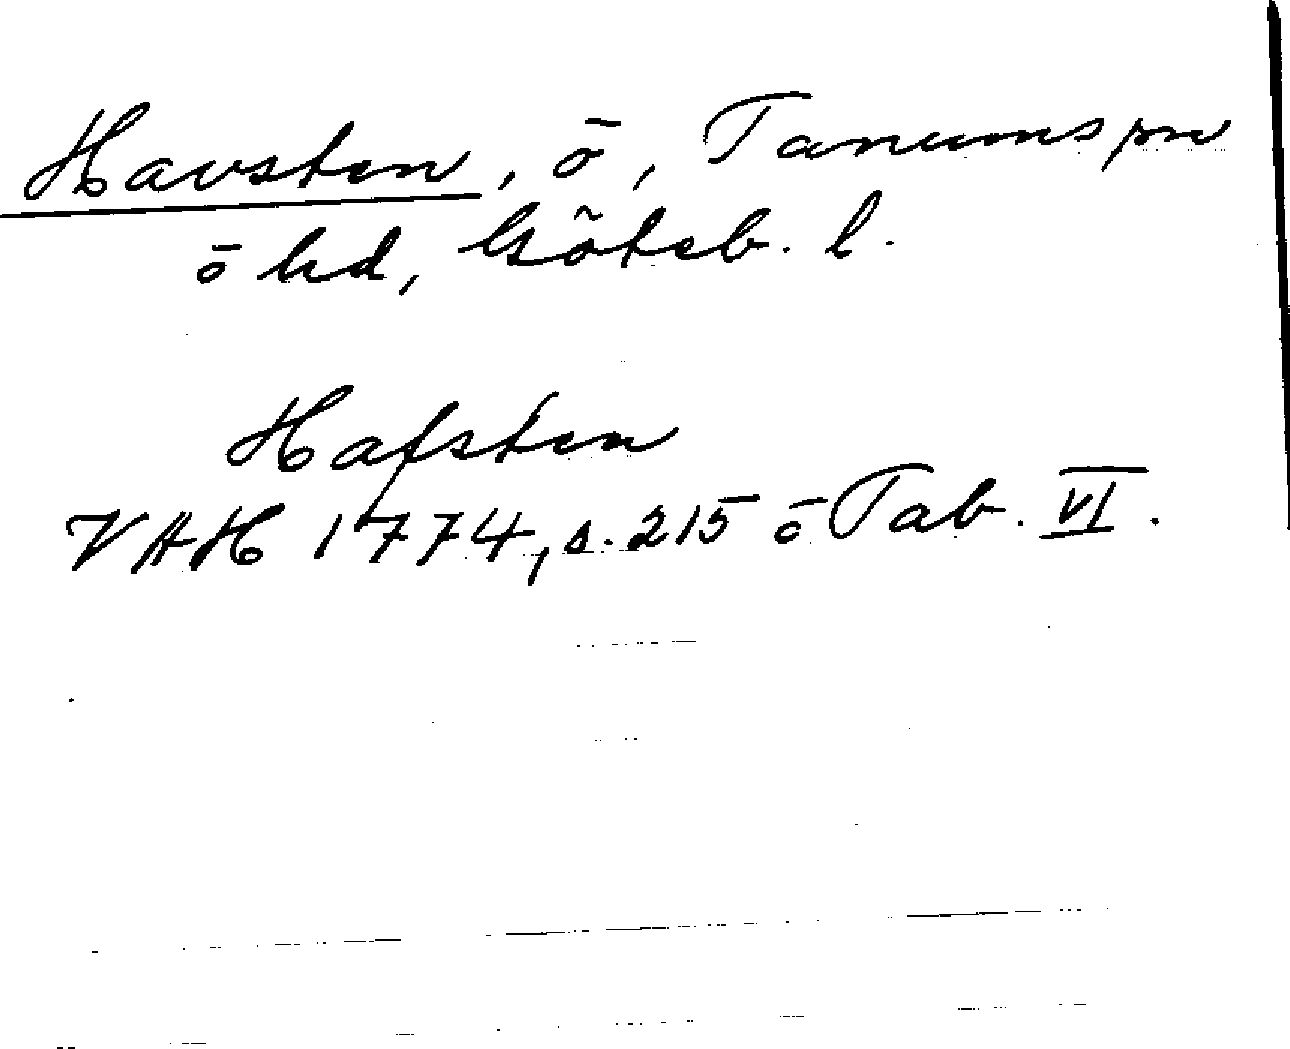 Havsten, ö, Tanums sn
o hd, Göteb. l.
Hafsten
VAH 1774, s. 215 o Tab. VI.